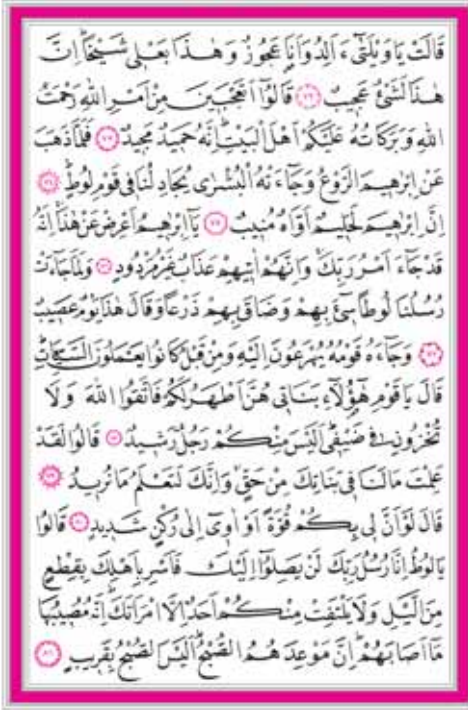 قَالَتْ يَا وَيْلَتٰٓى ءَاَلِدُ وَاَنَا۬ عَجُوزٌ وَهٰذَا بَعْلٖي شَيْخًاۜ اِنَّ
هٰذَا لَشَيْءٌ عَجٖيبٌ ﴿٧٢﴾ قَالُٓوا اَتَعْجَبٖينَ مِنْ اَمْرِ اللّٰهِ رَحْمَتُ
اللّٰهِ وَبَرَكَاتُهُ عَلَيْكُمْ اَهْلَ الْبَيْتِۜ اِنَّهُ حَمٖيدٌ مَجٖيدٌ ﴿٧٣﴾ فَلَمَّا ذَهَبَ
عَنْ اِبْرٰهٖيمَ الرَّوْعُ وَجَٓاءَتْهُ الْبُشْرٰى يُجَادِلُنَا فٖي قَوْمِ لُوطٍۜ ﴿٧٤﴾
اِنَّ اِبْرٰهٖيمَ لَحَلٖيمٌ اَوَّاهٌ مُنٖيبٌ ﴿٧٥﴾ يَٓا اِبْرٰهٖيمُ اَعْرِضْ عَنْ هٰذَاۚ اِنَّهُ
قَدْ جَٓاءَ اَمْرُ رَبِّكَۚ وَاِنَّهُمْ اٰتٖيهِمْ عَذَابٌ غَيْرُ مَرْدُودٍ ﴿٧٦﴾ وَلَمَّا جَٓاءَتْ
رُسُلُنَا لُوطًا سٖٓيءَ بِهِمْ وَضَاقَ بِهِمْ ذَرْعًا وَقَالَ هٰذَا يَوْمٌ عَصٖيبٌ
﴿٧٧﴾ وَجَٓاءَهُ قَوْمُهُ يُهْرَعُونَ اِلَيْهِ وَمِنْ قَبْلُ كَانُوا يَعْمَلُونَ السَّيِّـَٔاتِۜ
قَالَ يَا قَوْمِ هٰٓؤُ۬لَٓاءِ بَنَاتٖي هُنَّ اَطْهَرُ لَكُمْ فَاتَّقُوا اللّٰهَ وَلَا
تُخْزُونِ فٖي ضَيْفٖيۜ اَلَيْسَ مِنْكُمْ رَجُلٌ رَشٖيدٌ ﴿٧٨﴾ قَالُوا لَقَدْ
عَلِمْتَ مَا لَنَا فٖي بَنَاتِكَ مِنْ حَقٍّۚ وَاِنَّكَ لَتَعْلَمُ مَا نُرٖيدُ ﴿٧٩﴾
قَالَ لَوْ اَنَّ لٖي بِكُمْ قُوَّةً اَوْ اٰوٖٓي اِلٰى رُكْنٍ شَدٖيدٍ ﴿٨٠﴾ قَالُوا
يَا لُوطُ اِنَّا رُسُلُ رَبِّكَ لَنْ يَصِلُٓوا اِلَيْكَ فَاَسْرِ بِاَهْلِكَ بِقِطْعٍ
مِنَ الَّيْلِ وَلَا يَلْتَفِتْ مِنْكُمْ اَحَدٌ اِلَّا امْرَاَتَكَۜ اِنَّهُ مُصٖيبُهَا
مَٓا اَصَابَهُمْۜ اِنَّ مَوْعِدَهُمُ الصُّبْحُۜ اَلَيْسَ الصُّبْحُ بِقَرٖيبٍ ﴿٨١﴾